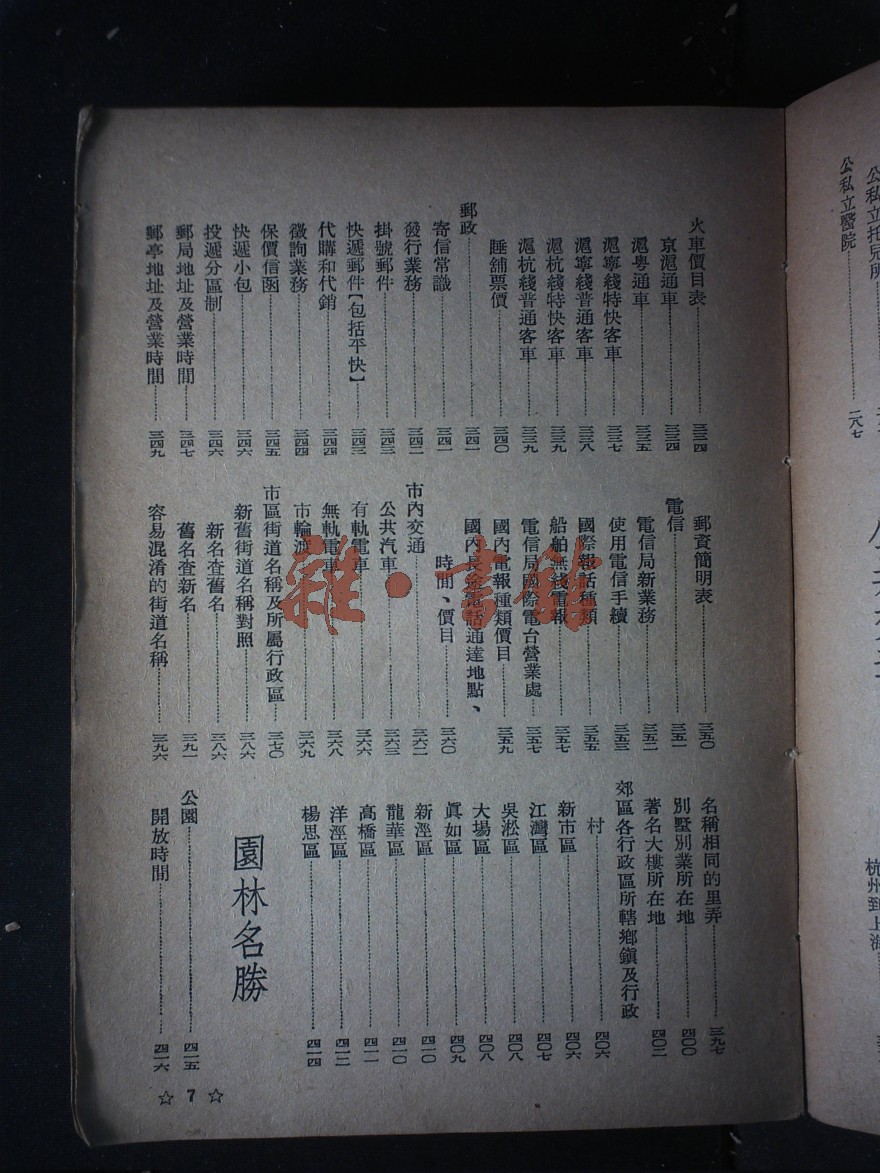 火車價目表……三三四
京滬通車……三三四
滬粵通車……三三五
滬寧綫特快客車……三三七
滬寧綫普通客車……三三八
滬杭綫特快客車……三三九
滬杭綫普通客車……三三九
睡舖票價……三四〇
郵政……三四一
寄信常識……三四一
發行業務……三四二
掛號郵件……三四三
快遞郵件【包括平快】……三四三
代購和代銷……三四四
徵詢業務……三四四
保價信函……三四五
快遞小包……三四六
投遞分區制……三四六
郵局地址及營業時間……三四七
郵亭地址及營業時間……三四九
郵資簡明表……三五〇
電信……三五一
電信局新業務……三五二
使用電信手續……三五三
國際報話種類……三五五
船舶無綫電報……三五七
電信局國際電台營業處……三五七
國內電報種類價目……三五九
國內長途電話通達地點、
時間、價目……三六〇
市內交通……三六二
公共汽車……三六三
有軌電車……三六六
無軌電車……三六八
市輪渡……三六九
市區街道名稱及所屬行政區……三七〇
新舊街道名稱對照……三八六
新名查舊名……三八六
舊名查新名……三九一
容易混淆的街道名稱……三九六
名稱相同的里弄……三九七
別墅別業所在地……四〇〇
著名大樓所在地……四〇二
郊區各行政區所轄鄉鎮及行政
村……四〇六
新市區……四〇六
江灣區……四〇七
吳淞區……四〇八
大場區……四〇八
眞如區……四〇九
新涇區……四一〇
龍華區……四一〇
高橋區……四一一
洋涇區……四一二
楊思區……四一四
園林名勝
公園……四一五
開放時間……四一六
☆ 7 ☆
公私立托兒所
公私立醫院……二八七
杭州到上海
雜·書館